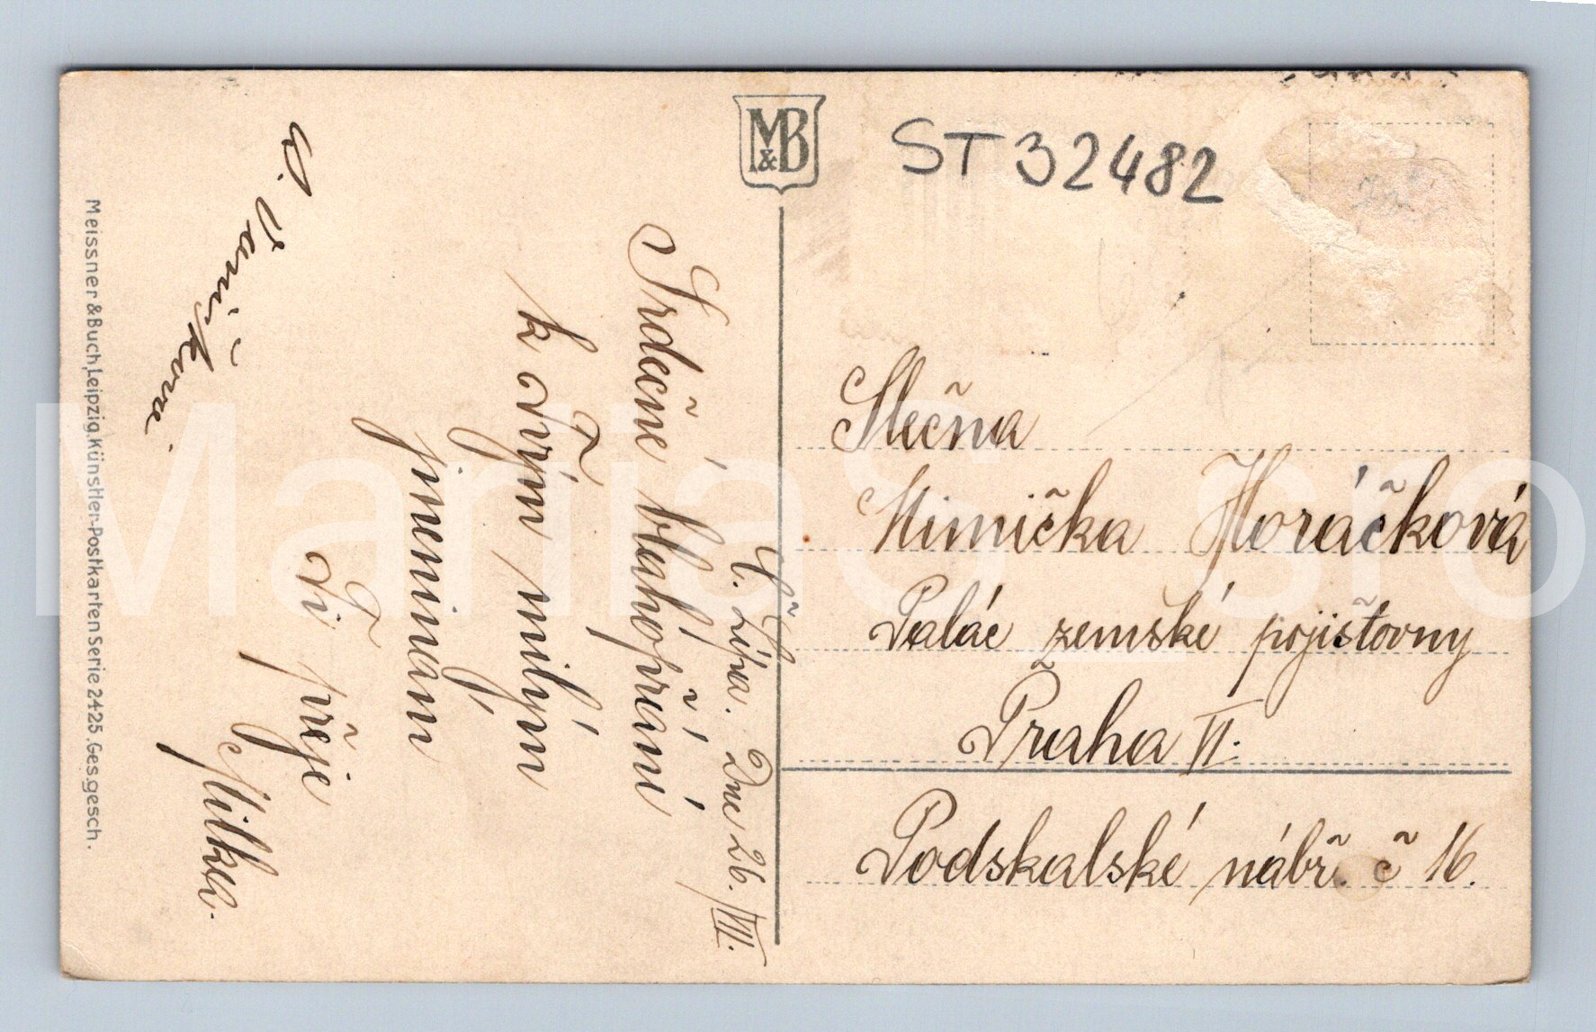 M&B
ST 32482
Slečna
Mimička Horáčková
Palác zemské pojišťovny
Praha VI.
Podskalské nábř. č 16.
Č. Lípa. Dne 26./VII.
Srdečné blahopřání
k Tvým milým
jmeninám
Ti přeje
Milka.
Meissner & Buch, Leipzig. Künstler-Postkarten Serie 2425. Ges. gesch.
MariaS sro